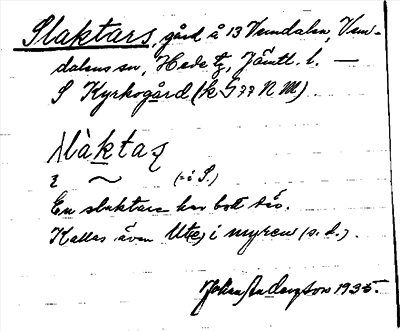 Slaktars, gård å 13 Vemdalen, Vem-
dalens sn, Hede tg, Jämtl. l. —
S Kyrkogård (k G77 N M).
slàktaʂ
i ~ (=i S.)
En slaktare har bott här.
Kallas även Ute) i myren (s. d.).
Johan Andersson 1935.